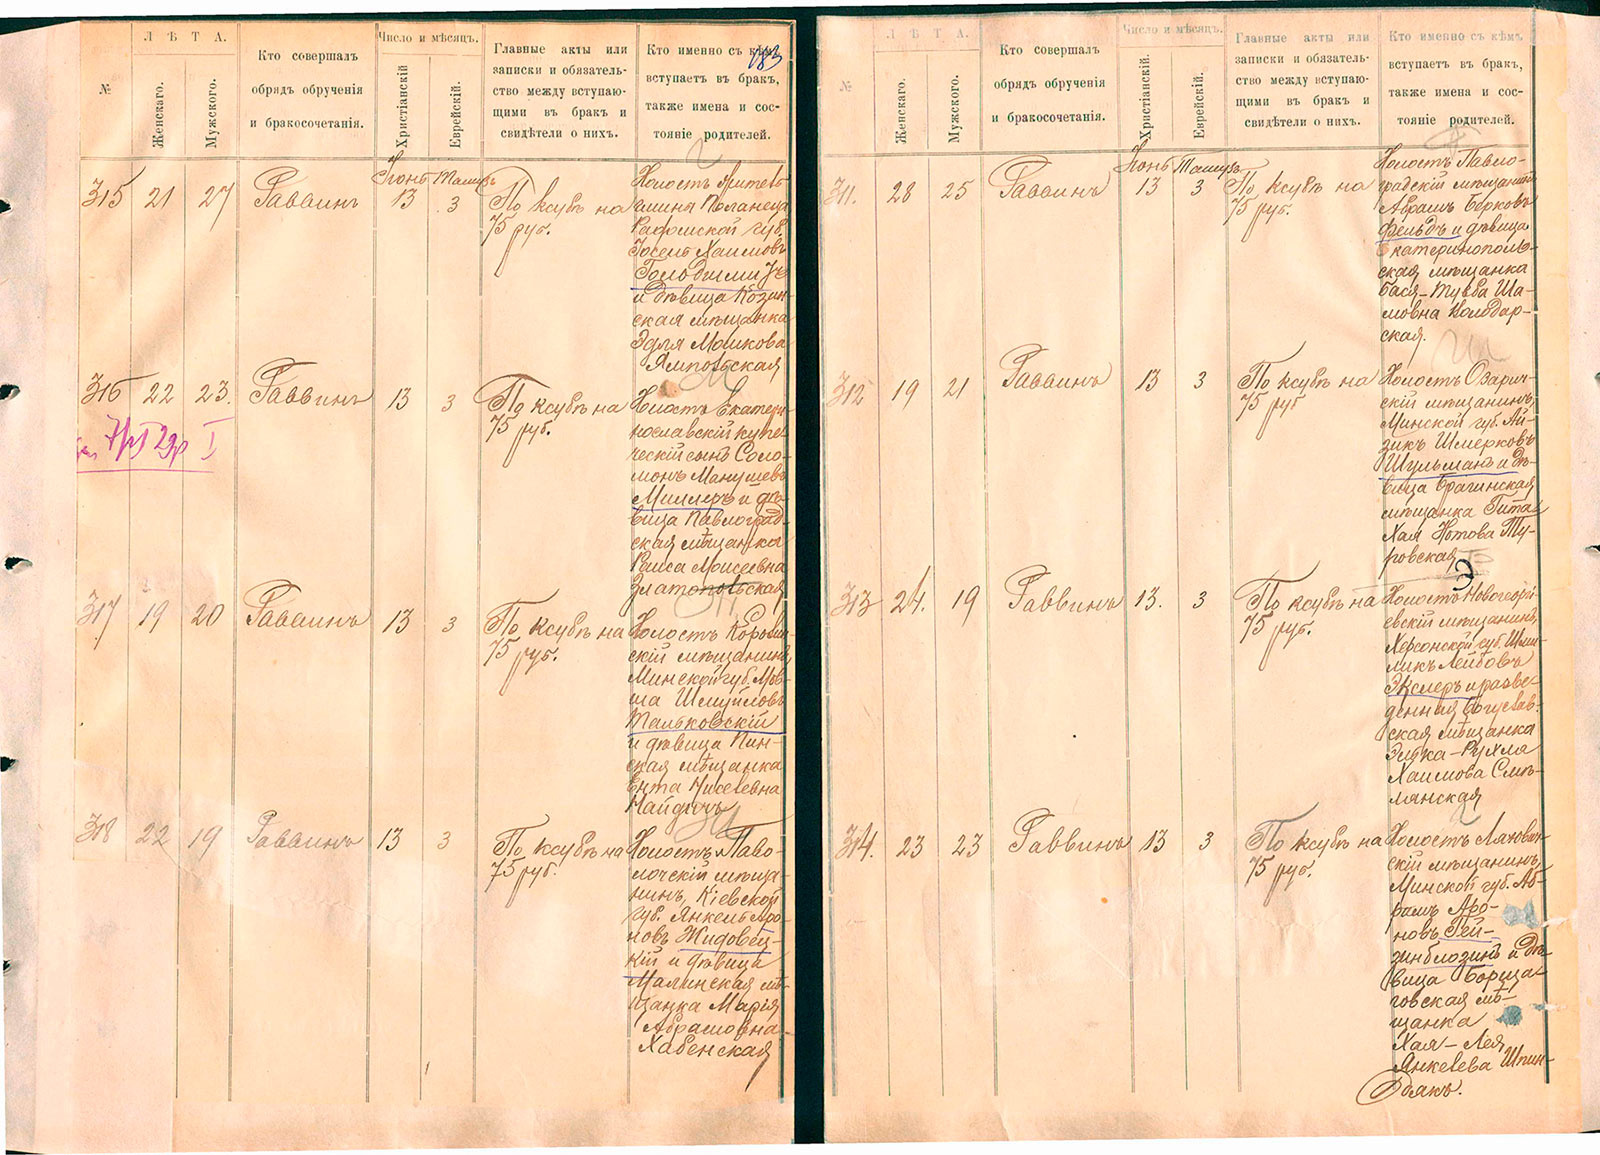 183
№
Л Ѣ Т А.
Женскаго.
Мужского.
Кто совершалъ
обрядъ обрученія
и бракосочетанія.
Число и мѣсяцъ.
Христіанскій
Еврейскій.
Главные акты или
записки и обязатель-
ство между вступаю-
щими въ бракъ и
свидѣтели о нихъ.
Кто именно съ кѣмъ
вступаетъ въ бракъ,
также имена и сос-
тояніе родителей.
315 21 27 Раввинъ
Іюнь Тамузъ
13 3
По ксубѣ на
75 руб.
Холостъ
Поланеца
Радомской губ.
Іосель Хаимовъ
и дѣвица Козин-
ская мѣщанка
Эдля Мошкова
Ямпольская
316 22 23. Раввинъ 13 3
По ксубѣ на
75 руб.
Холостъ Екатери-
нославскій купе-
ческій сынъ Соло-
монъ Манушевъ
Миллеръ и дѣ-
вица Павлоград-
ская мѣщанка
Раиса Моисеевна
Златопольская
317 19 20 Раввинъ 13 3
По ксубѣ на
75 руб.
Холостъ
скій мѣщанинъ,
Минской губ. Мов-
ша Шмуйловъ
Тальковскій
и дѣвица Пин-
ская мѣщанка
Ента Ниселевна
Найдичъ
318 22 19 Раввинъ 13 3
По ксубѣ на
75 руб.
Холостъ Паво-
лочскій мѣща-
нинъ, Кіевской
губ. Янкель Аро-
новъ Жидовец-
кій и дѣвица
Малинская мѣ-
щанка Марія
Абрамовна
Хабенская
№
Л Ѣ Т А.
Женскаго.
Мужского.
Кто совершалъ
обрядъ обрученія
и бракосочетанія.
Число и мѣсяцъ.
Христіанскій.
Еврейскій.
Главные акты или
записки и обязатель-
ство между вступаю-
щими въ бракъ и
свидѣтели о нихъ.
Кто именно съ кѣмъ
вступаетъ въ бракъ,
также имена и сос-
тояніе родителей.
311. 28 25 Раввинъ
Іюнь Тамузъ
13 3
По ксубѣ на
75 руб.
Холостъ Павло-
градскій мѣщанинъ
Абрамъ Берковъ
Фельдъ и дѣвица
Екатеринополь-
ская мѣщанка
Бася-Тувба Ша-
мовна Володар-
ская.
312 19 21 Раввинъ 13 3
По ксубѣ на
75 руб
Холостъ Озарич-
скій мѣщанинъ,
Минской губ. Ай-
зикъ Шмерковъ
Шульманъ и дѣ-
вица Брагинская
мѣщанка Гита-
Хая Нотова Ту-
ровская
313 24. 19 Раввинъ 13. 3
По ксубѣ на
75 руб.
Холостъ Новогеоргі-
евскій мѣщанинъ,
Херсонской губ. Шми-
ликъ Лейбовъ
Экслеръ и разве-
денная Богуслав-
ская мѣщанка
Элька-Рухля
Хаимова Смѣ-
лянская
314. 23 23 Раввинъ 13 3
По ксубѣ на
75 руб.
Холостъ Ляхович-
скій мѣщанинъ,
Минской губ. Аб-
рамъ Аро-
новъ Гей-
зинблозинъ и дѣ-
вица Борща-
говская мѣ-
щанка
Хая-Лея
Янкелева Шпин-
бякъ.